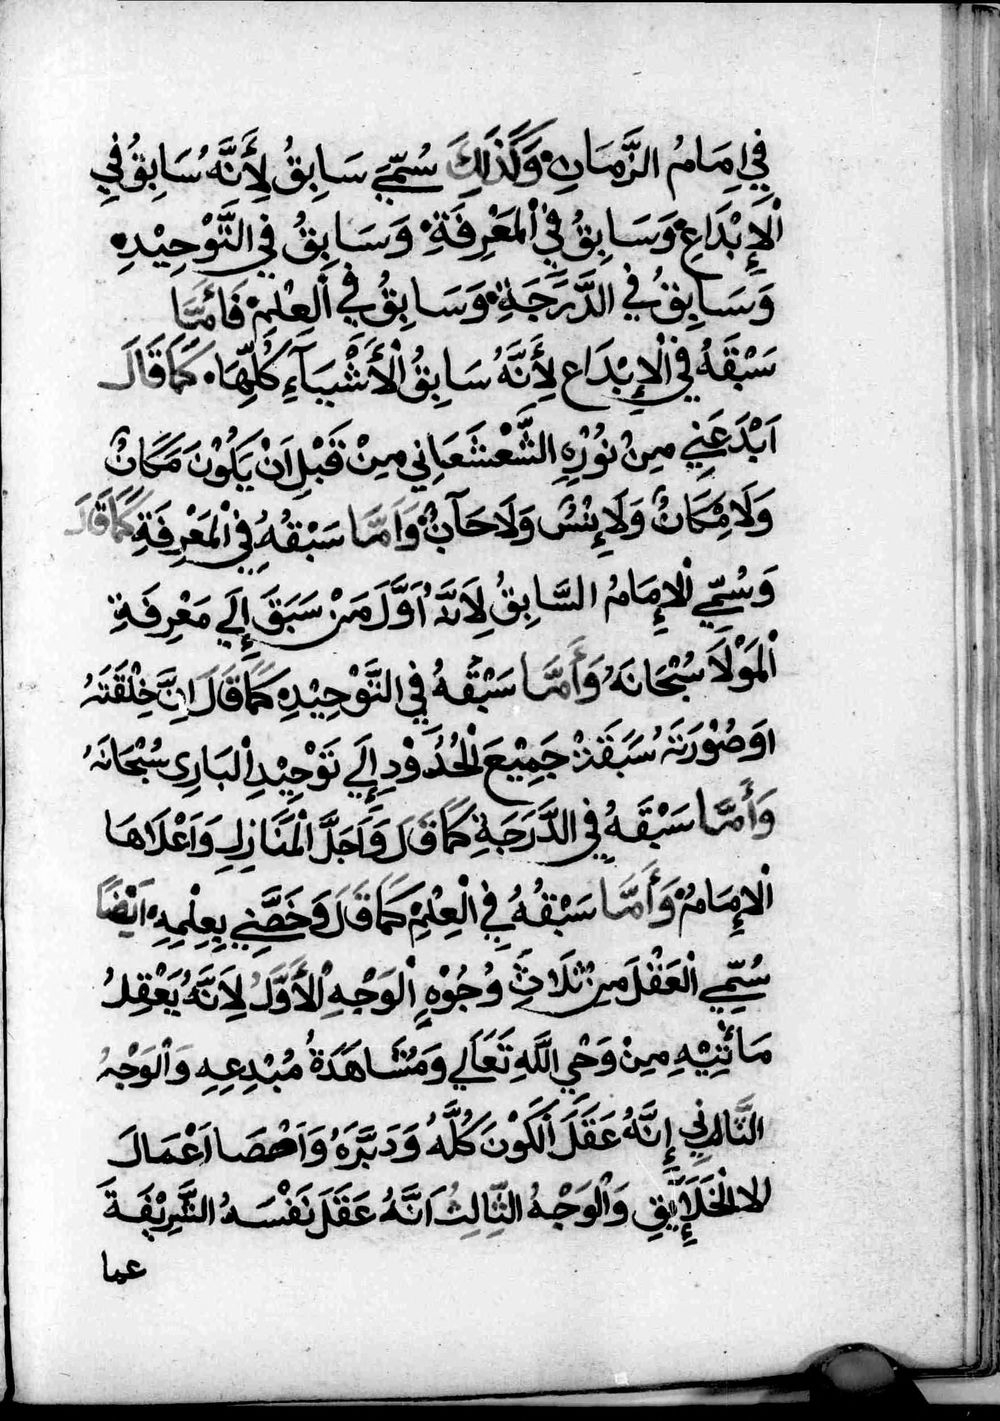 فِي اِمَامُ الزَّمَانِ وَكَذَالِكَ سُمِّيَ سَابِقُ لِأَنَّهُ سَابِقُ فِي
الْإِبْدَاعِ وَسَابِقُ فِي الْمَعْرِفَةِ وَسَابِقُ فِي التَّوْحِيْدِ
وَسَابِقُ فِي الدَّرَجَةِ وَسَابِقُ فِي الْعِلْمِ فَأَمَّا
سَبْقَهُ فِي الْإِبْدَاعِ لِأَنَّهُ سَابِقُ الْأَشْيَآءِ كُلِّهَا كَمَا قَالَ
اَبْدَعَنِي مِنْ نُوْرِهِ الشَّعْشَعَانِي مِنْ قَبْلِ اَنْ يَكُوْنَ مَكَانٌ
وَلَا مِكَانٌ وَلَا اِنْسٌ وَلَا جَآنٌ وَاَمَّا سَبْقُهُ فِي الْمَعْرِفَةِ كَمَا قَالَ
وَسُمِّيَ الْإِمَامُ السَّابِقُ لِاَنَّهُ اَوَّلَ مَنْ سَبَقَ إِلَي مَعْرِفَةِ
الْمَوْلَا سُبْحَانَهُ وَأَمَّا سَبْقُهُ فِي التَّوْحِيْدِ كَمَا قَالَ اِنَّ خِلْقَتَهُ
اوَصُوْرَتَهُ سَبَقَتْ جَمِيْعَ الْحُدُوْدِ إِلَي تَوْحِيْدِ الْبَارِي سُبْحَانَهُ
وَأَمَّا سَبْقَهُ فِي الدَّرَجَةِ كَمَا قَالَ وَاَجَلَّ الْمَنَازِلِ وَاَعْلَاهَا
الْإِمَامُ وَأَمَّا سَبْقُهُ فِي الْعِلْمِ كَمَا قَالَ وَخَصَّنِي بِعِلْمِهِ اَيْضًا
سُمِّيَ الْعَقْلَ مِنْ ثَلَاثِ وُجُوْهٍ الْوَجْهِ الْأَوَّلُ لِاَنَّهُ يَعْقِلُ
مَا تِيْهِ مِنْ وَحْيِ اللَّهِ تَعَالَي وَمُشَاهَدَةُ مُبْدِعِهِ وَالْوَجْهُ
الثَّانِي إِنَّهُ عَقَلَ الْكَوْنَ كُلَّهُ وَدَبَّرَهُ وَاَحْصَا اَعْمَالَ
الاالْخَلَايِقِ وَالْوَجْهُ الثَّالِثُ اَنَّهُ عَقَلَ نَفْسَهُ الشَّرِيْفَةَ
عما